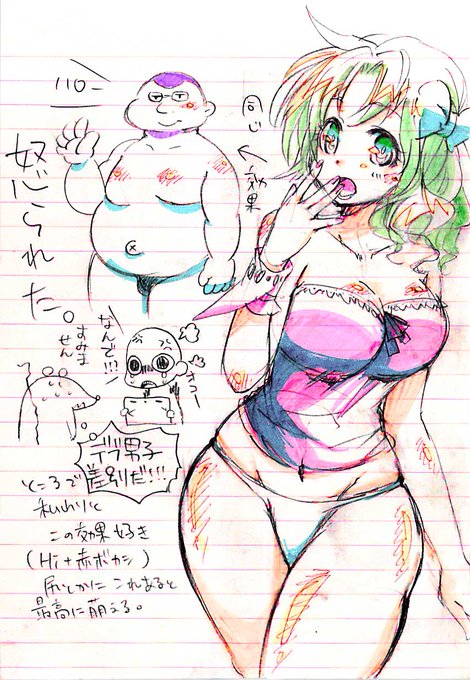 ハロー
同じ
効果
怒られた。
なんで!!!
オコー
すみま
せん
デブ男子
差別だ!!!
ところで
私わりと
この効果好き
(Hi+赤ボカシ)
尻とかに これあると
最高に萌える。